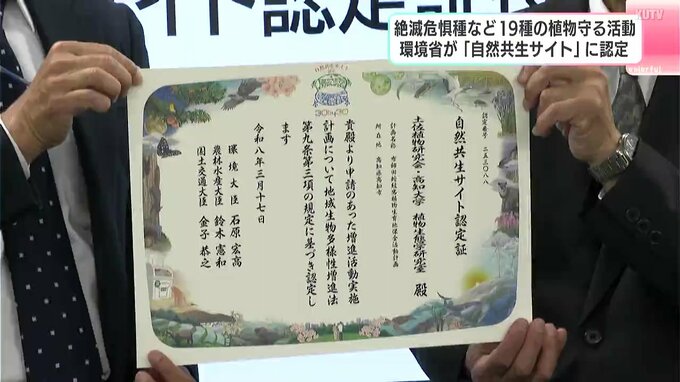 イト認定証授
KUTV
絶滅危惧種など19種の植物守る活動
環境省が「自然共生サイト」に認定
wonderful
30by30
認定番号 二五三〇八八
自然共生サイト認定証
土佐植物研究会・高知大学 植物生態学研究室 殿
所在地 高知県高知市
貴殿より申請のあった増進活動実施
計画について地域生物多様性増進法
第九条第三項の規定に基づき認定し
ます
令和八年三月十七日
環境大臣 石原宏高
農林水産大臣 鈴木憲和
国土交通大臣 金子恭之